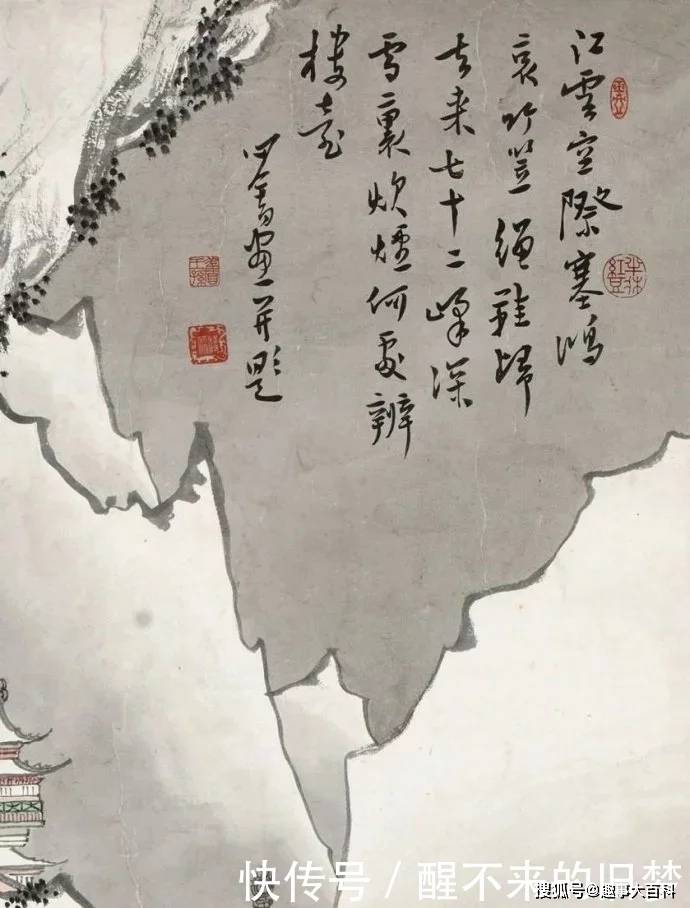 江雲空際塞鴻
哀竹笠繩鞋歸
去来七十二峰深
雪裏炊煙何處辨
樓臺
心畬畫并題
舊王孫
快传号 / 醒不来的旧梦
搜狐号@趣事大百科